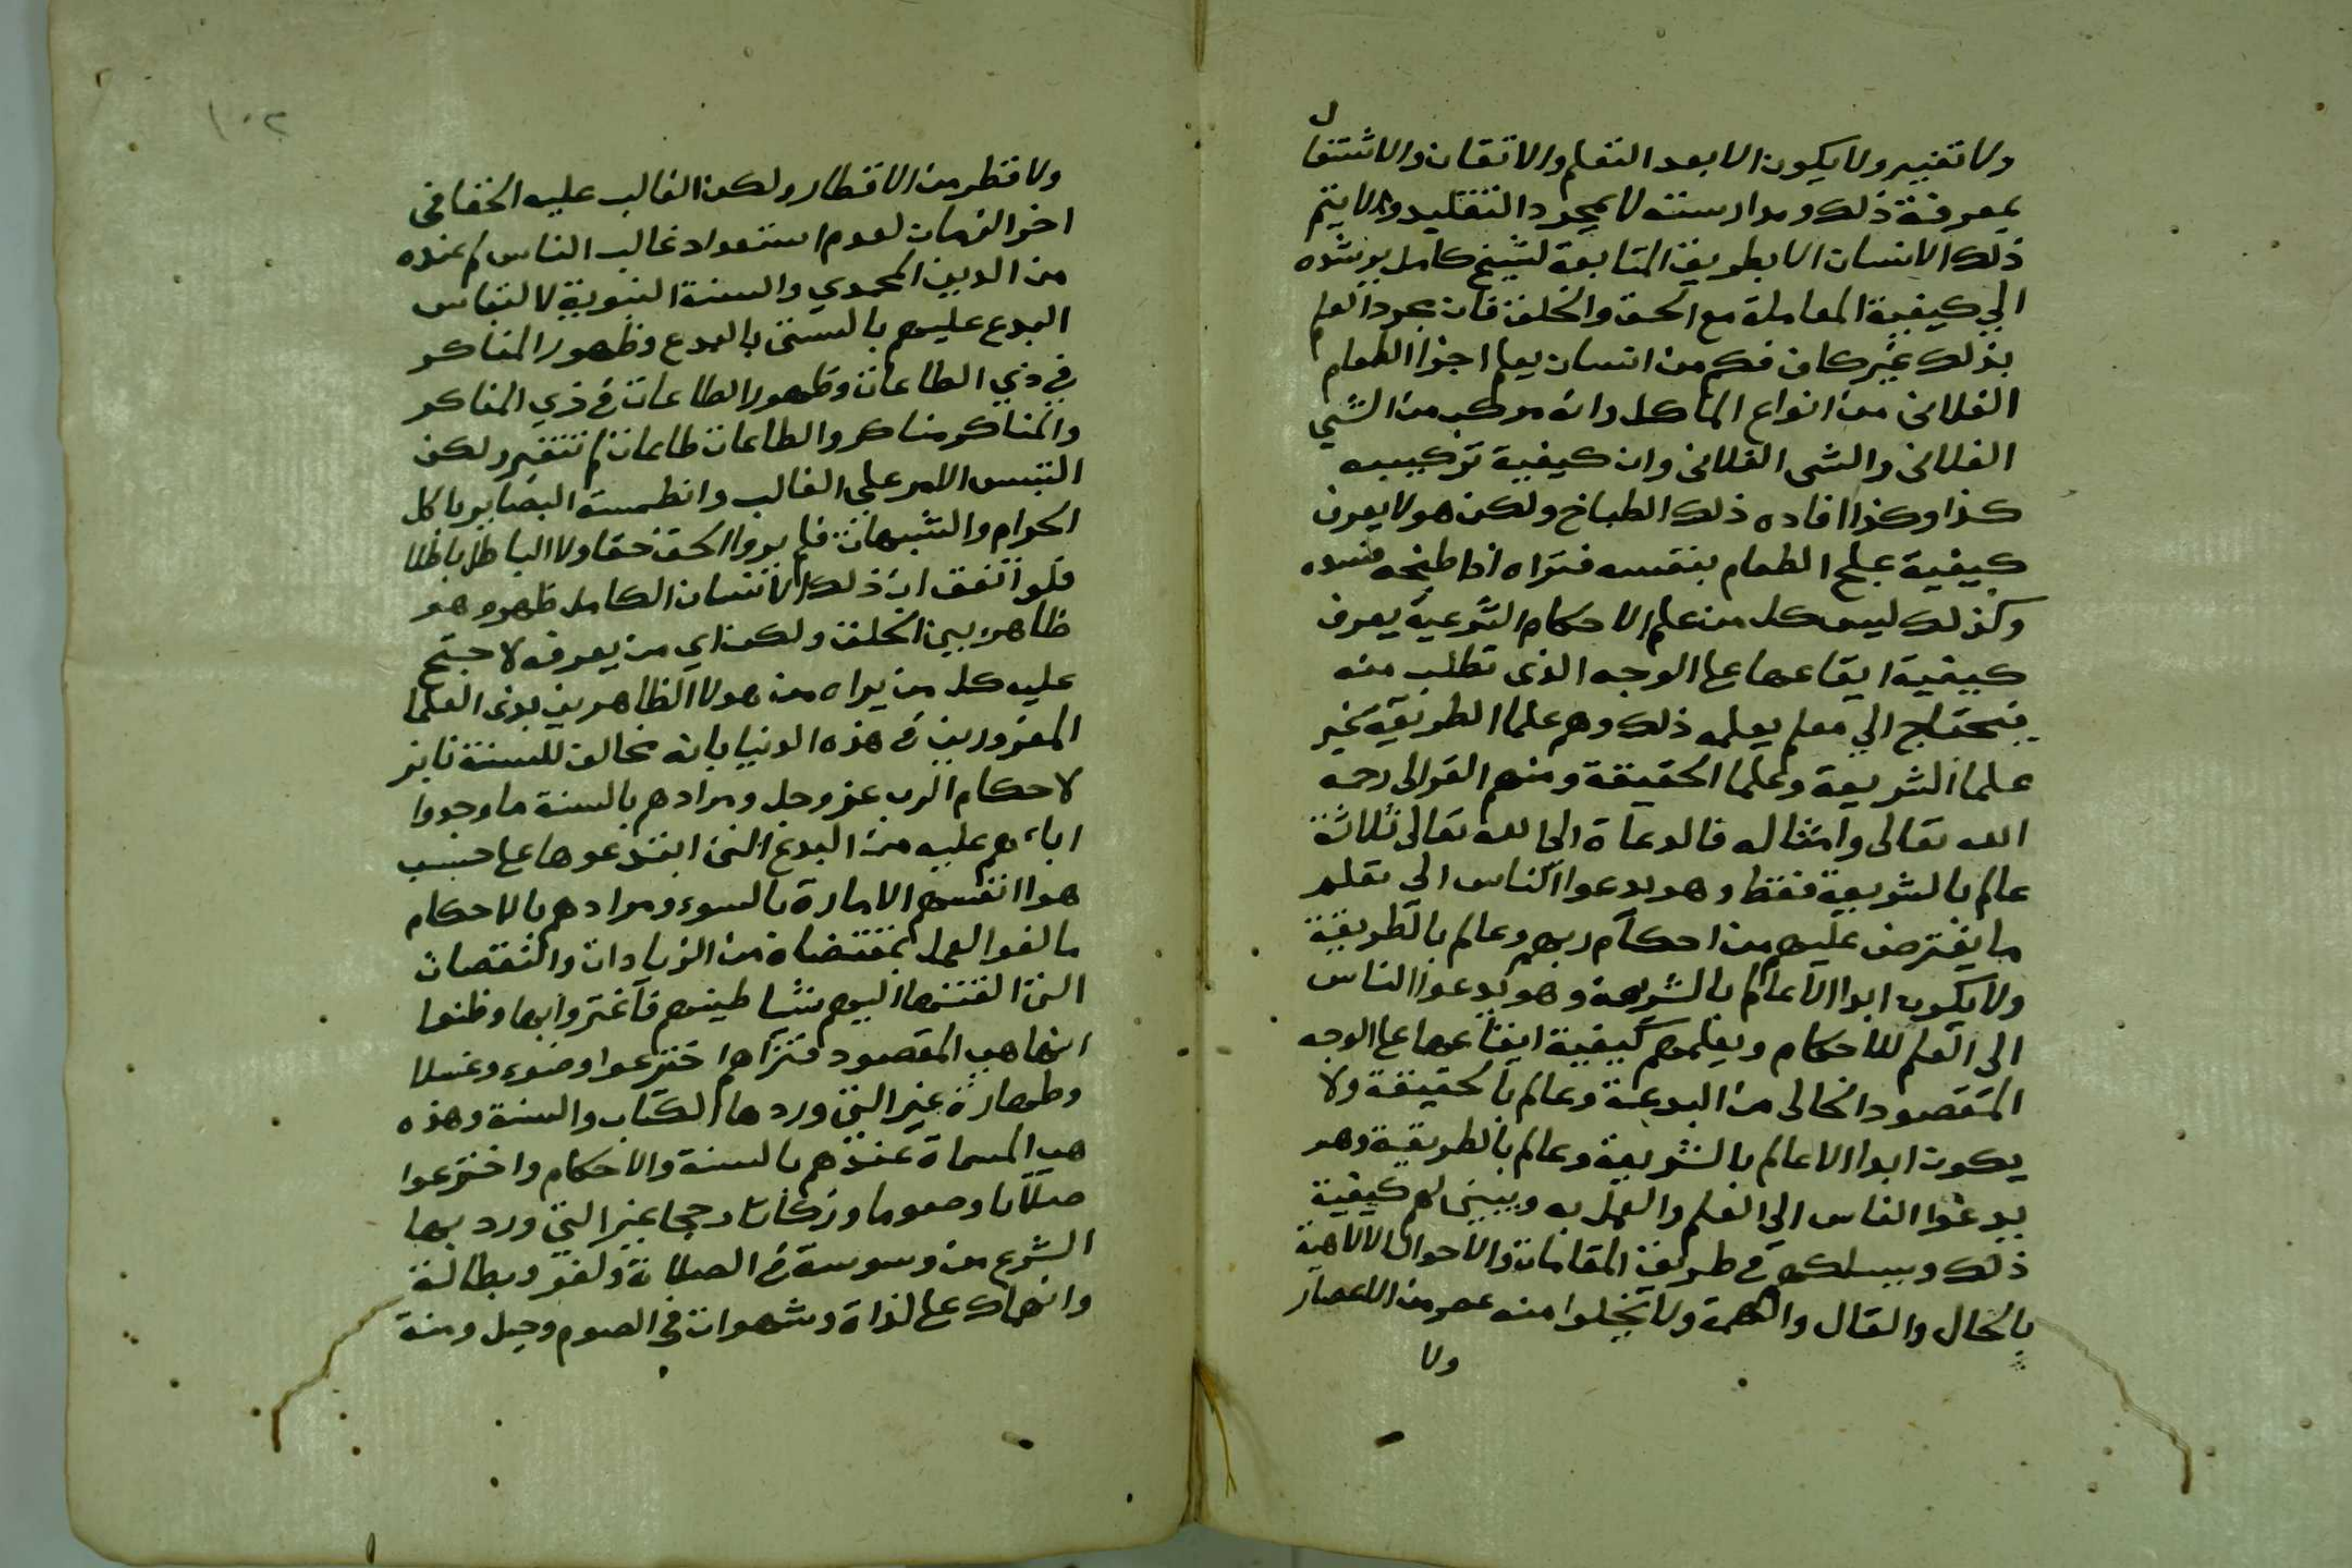 ولا تغيير ولا يكون الا بعد التعلم والاتقان والاشتغال
بمعرفة ذلك ومدارسته لا بمجرد التقليد ولا يتم
ذلك الانسان الا بطريق المتابعة لشيخ كامل يرشده
الي كيفية المعاملة مع الحق والخلق فان مجرد العلم
بذلك غير كاف فكم من انسان يعلم اجزا الطعام
الفلاني من انواع الماكل وانه مركب من الشي
الفلاني والشي الفلاني وان كيفية تركيبه
كذا وكذا افاده ذلك الطباخ ولكن هو لا يعرف
كيفية عمل الطعام بنفسه فتراه اذا طبخه فسده
وكذلك ليس كل من علم الاحكام الشرعية يعرف
كيفية ايقاعها على الوجه الذي تطلب منه
فيحتاج الي معلم يعلمه ذلك وهم علما الطريقة غير
علما الشريعة وعلما الحقيقة ومنهم الغزالي رحمه
الله تعالى وامثاله فالدعاة الى الله تعالى ثلاثة
عالم بالشريعة فقط وهو يدعوا الناس الي تعلم
ما يفترض عليهم من احكام ربهم وعالم بالطريقة
ولا يكون ابدا الا عالم بالشريعة وهو يدعوا الناس
الى العلم للاحكام ويعلمهم كيفية ايقاعها على الوجه
المقصود الخالي من البدعة وعالم بالحقيقة ولا
يكون ابدا الا عالم بالشريعة وعالم بالطريقة وهو
يدعوا الناس الي العلم والعمل به ويبين لهم كيفية
ذلك ويسلكهم في طريق المقامات والاحوال الالاهية
بالحال والقال والهمة ولا يخلوا منه عصر من الاعصار
ولا
١٠٢
ولا قطر من الاقطار ولكن الغالب عليه الخفا في
اخر الزمان لعدم استعداد غالب الناس لم عنده
من الدين المحمدي والسنة النبوية لالتباس
البدع عليهم بالسنن بالبدع وظهور المناكر
في زي الطاعات وظهور الطاعات في زي المناكر
والمناكر مناكر والطاعات طاعات لم تتغير ولكن
التبس الامر علي الغالب وانطمست البصاير باكل
الحرام والشبهات فلم يروا الحق حقا ولا الباطل باطلا
فلو اتفق ان ذلك الانسان الكامل ظهر وهو
ظاهر بين الخلق ولكن اي من يعرفه لاحتج
عليه كل من يراه من هولا الظاهرين بزي العلما
المغرورين في هذه الدنيا بانه مخالف للسنة نابذ
لاحكام الرب عز وجل ومرادهم بالسنة ما وجدوا
اباءهم عليه من البدع التي ابتدعوها على حسب
هوا انفسهم الامارة بالسوء ومرادهم بالاحكام
ما الفوا العمل بمقتضاه من الزيادات والنقصان
التي القتها اليهم شياطينهم فاغتروا بها وظنوا
انها هي المقصود فتراهم اخترعوا وضوء وغسلا
وطهارة غير التي ورد ها الكتاب والسنة وهذه
هي المسماة عندهم بالسنة والاحكام واخترعوا
صلاتا وصوما وزكاتا وحجا غير التي ورد بها
الشرع من وسوسة في الصلاة ولغو وبطالة
وانهماك على لذاة وشهوات في الصوم وحيل ومنة